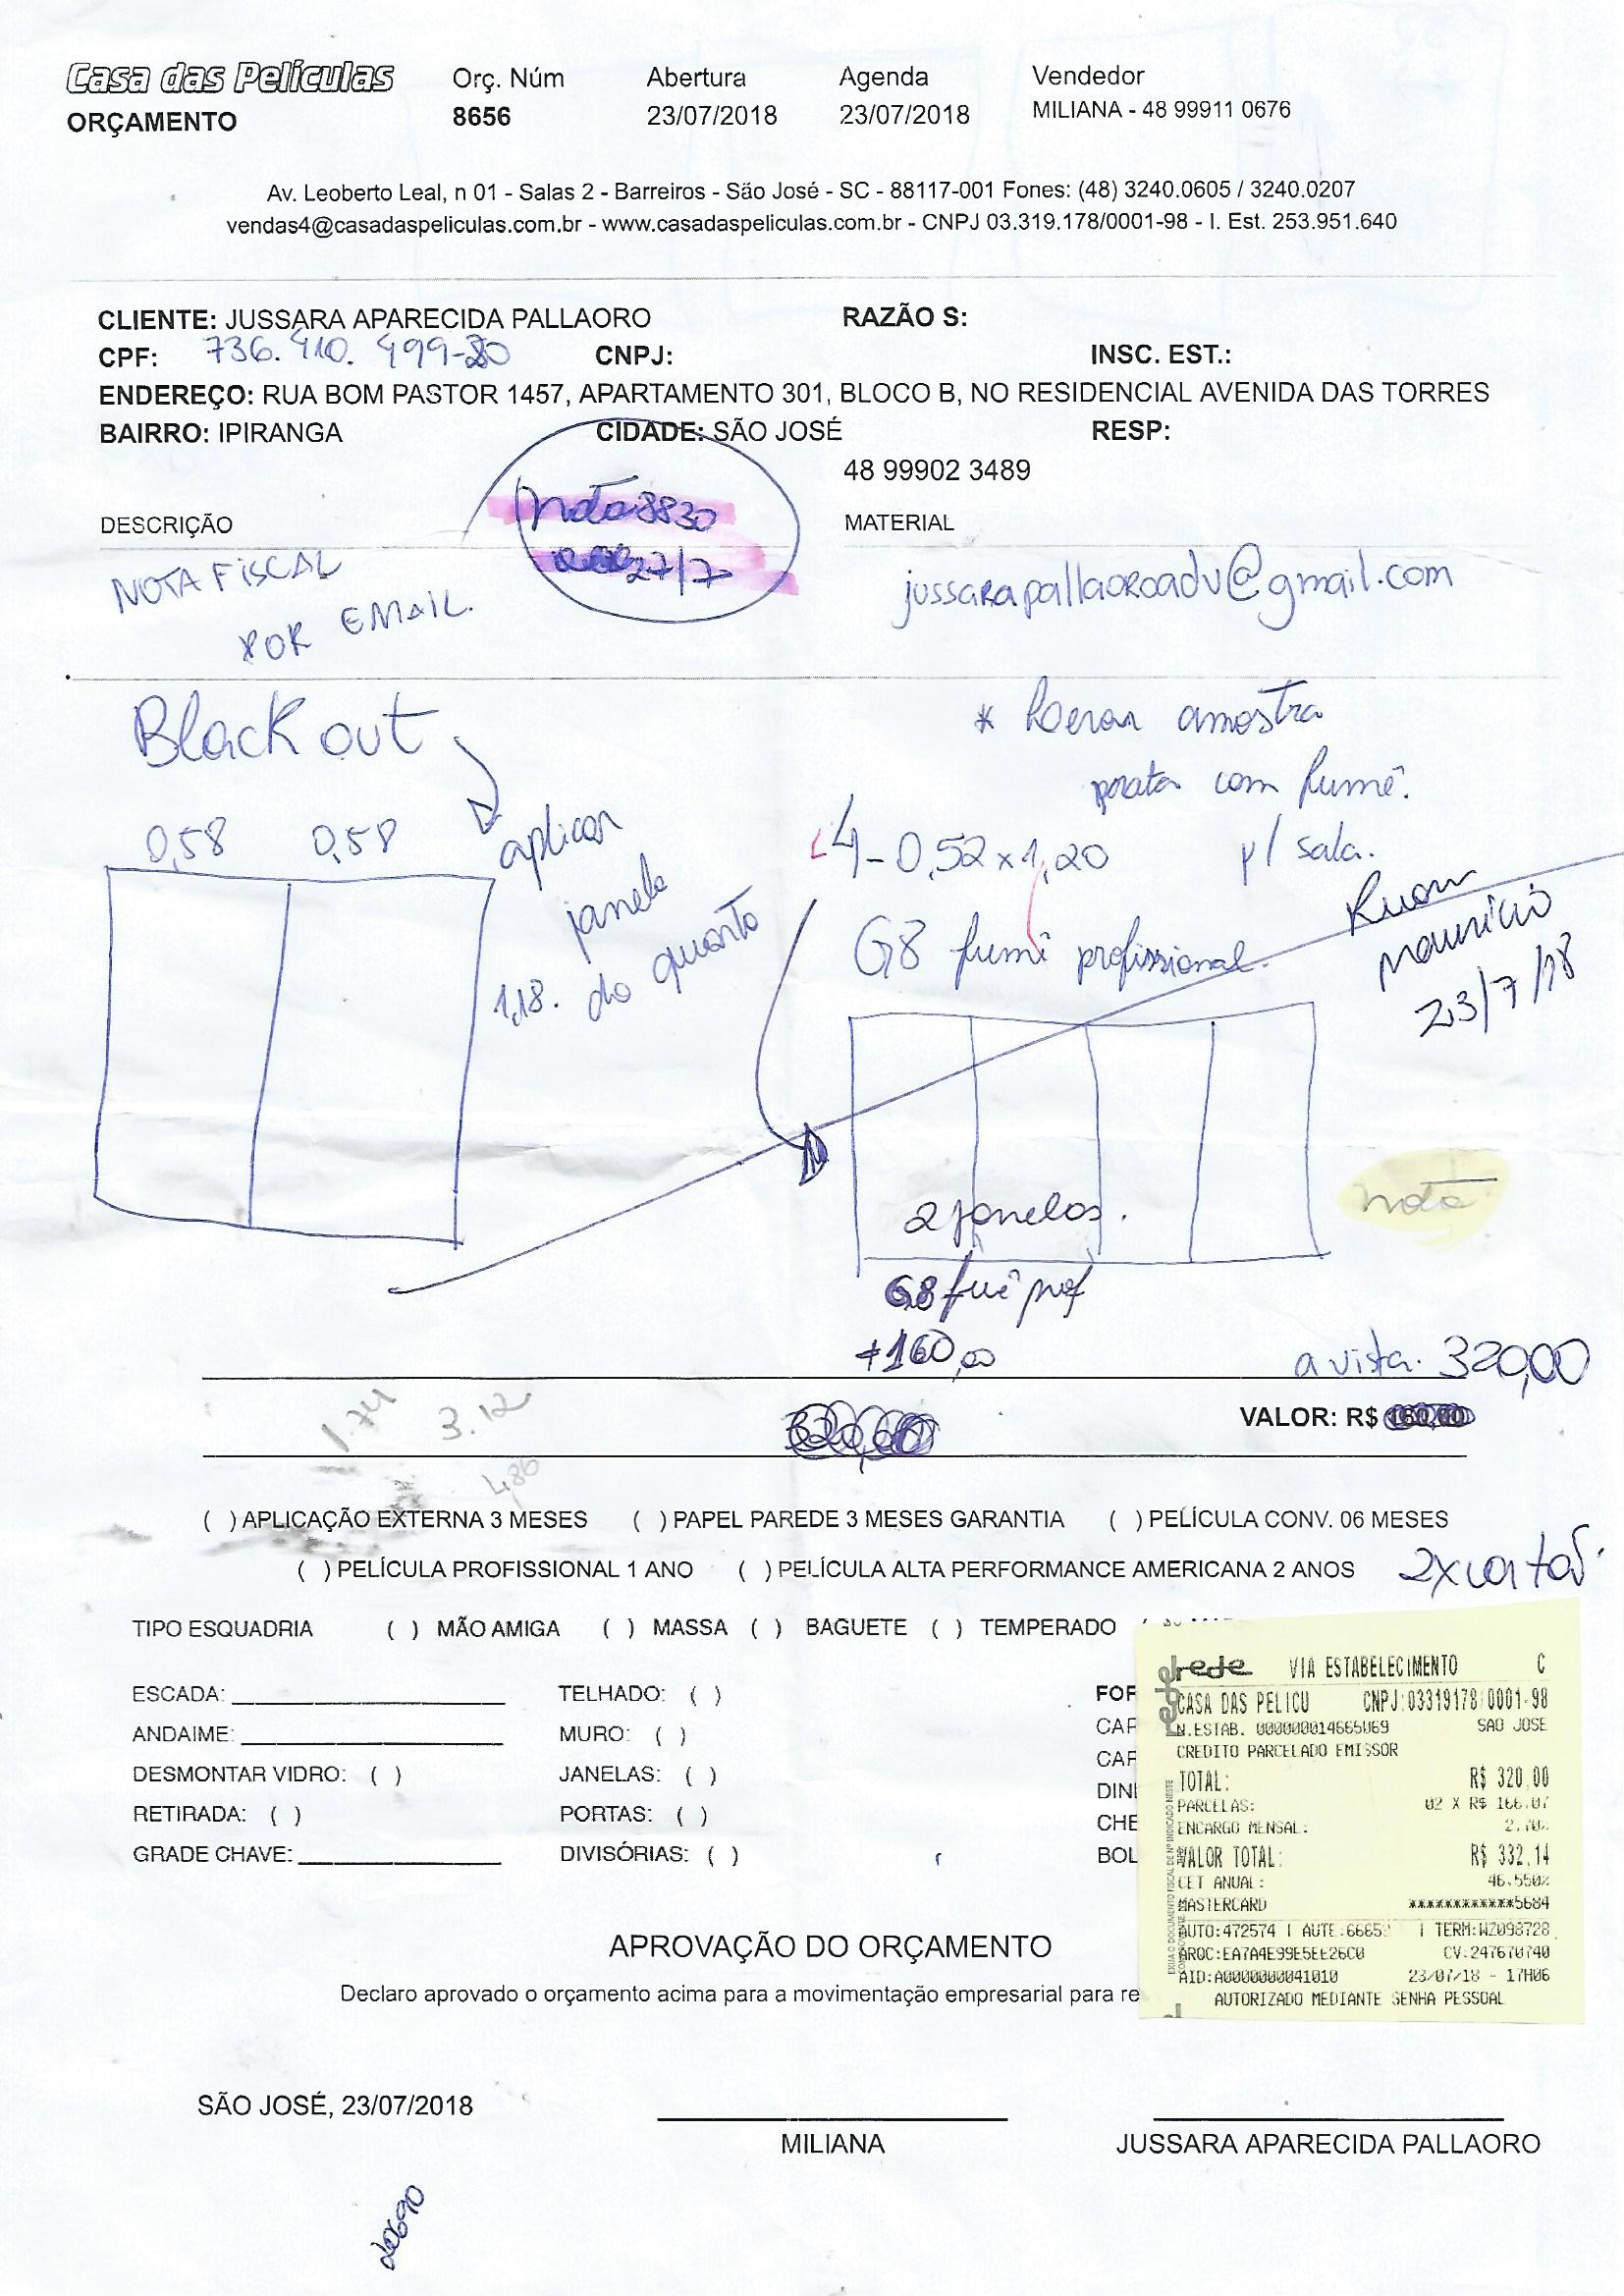 Casa das Películas
ORÇAMENTO
Orç. Núm
8656
Abertura
23/07/2018
Agenda
23/07/2018
Vendedor
MILIANA - 48 99911 0676
Av. Leoberto Leal, n 01 - Salas 2 - Barreiros - São José - SC - 88117-001 Fones: (48) 3240.0605 / 3240.0207
vendas4@casadaspeliculas.com.br - www.casadaspeliculas.com.br - CNPJ 03.319.178/0001-98 - I. Est. 253.951.640
CLIENTE: JUSSARA APARECIDA PALLAORO RAZÃO S:
CPF: 736.910.499-20 CNPJ: INSC. EST.:
ENDEREÇO: RUA BOM PASTOR 1457, APARTAMENTO 301, BLOCO B, NO RESIDENCIAL AVENIDA DAS TORRES
BAIRRO: IPIRANGA CIDADE: SÃO JOSÉ RESP:
48 99902 3489
nota 8830
27/7
DESCRIÇÃO MATERIAL
NOTA FISCAL
POR EMAIL.
jussarapallaoroadv@gmail.com
Black out
0,58 0,58
aplicar
janela
do quarto
1,18.
* Levar amostra
prata com fumê.
p/ sala.
4 - 0,52 x 1,20
G8 fumê profissional.
Ruan
Mauricio
23/7/18
2 janelas.
nota
G8 fuê prof
+160,00
a vista. 320,00
1.74 3.12
4,86
320,00
VALOR: R$ 160,00
( ) APLICAÇÃO EXTERNA 3 MESES ( ) PAPEL PAREDE 3 MESES GARANTIA ( ) PELÍCULA CONV. 06 MESES
( ) PELÍCULA PROFISSIONAL 1 ANO ( ) PELÍCULA ALTA PERFORMANCE AMERICANA 2 ANOS
2x cartão
TIPO ESQUADRIA ( ) MÃO AMIGA ( ) MASSA ( ) BAGUETE ( ) TEMPERADO
ESCADA: TELHADO: ( )
ANDAIME: MURO: ( )
DESMONTAR VIDRO: ( ) JANELAS: ( )
RETIRADA: ( ) PORTAS: ( )
GRADE CHAVE: DIVISÓRIAS: ( )
FOR
CAR
CAR
DINI
CHE
BOL
rede VIA ESTABELECIMENTO C
CASA DAS PELICU CNPJ:03319178/0001-98
N.ESTAB. 000000014665069 SAO JOSE
CREDITO PARCELADO EMISSOR
TOTAL: R$ 320,00
PARCELAS: 02 X R$ 166,07
ENCARGO MENSAL: 2,70%
VALOR TOTAL: R$ 332,14
CET ANUAL: 46,550%
MASTERCARD ************5684
AUTO:472574 | AUTE:6665 | TERM:WZ098728
ARQC:EA7A4E99E5EE26C0 CV:247670740
AID:A0000000041010 23/07/18 - 17H06
AUTORIZADO MEDIANTE SENHA PESSOAL
APROVAÇÃO DO ORÇAMENTO
Declaro aprovado o orçamento acima para a movimentação empresarial para re
SÃO JOSÉ, 23/07/2018
MILIANA
JUSSARA APARECIDA PALLAORO